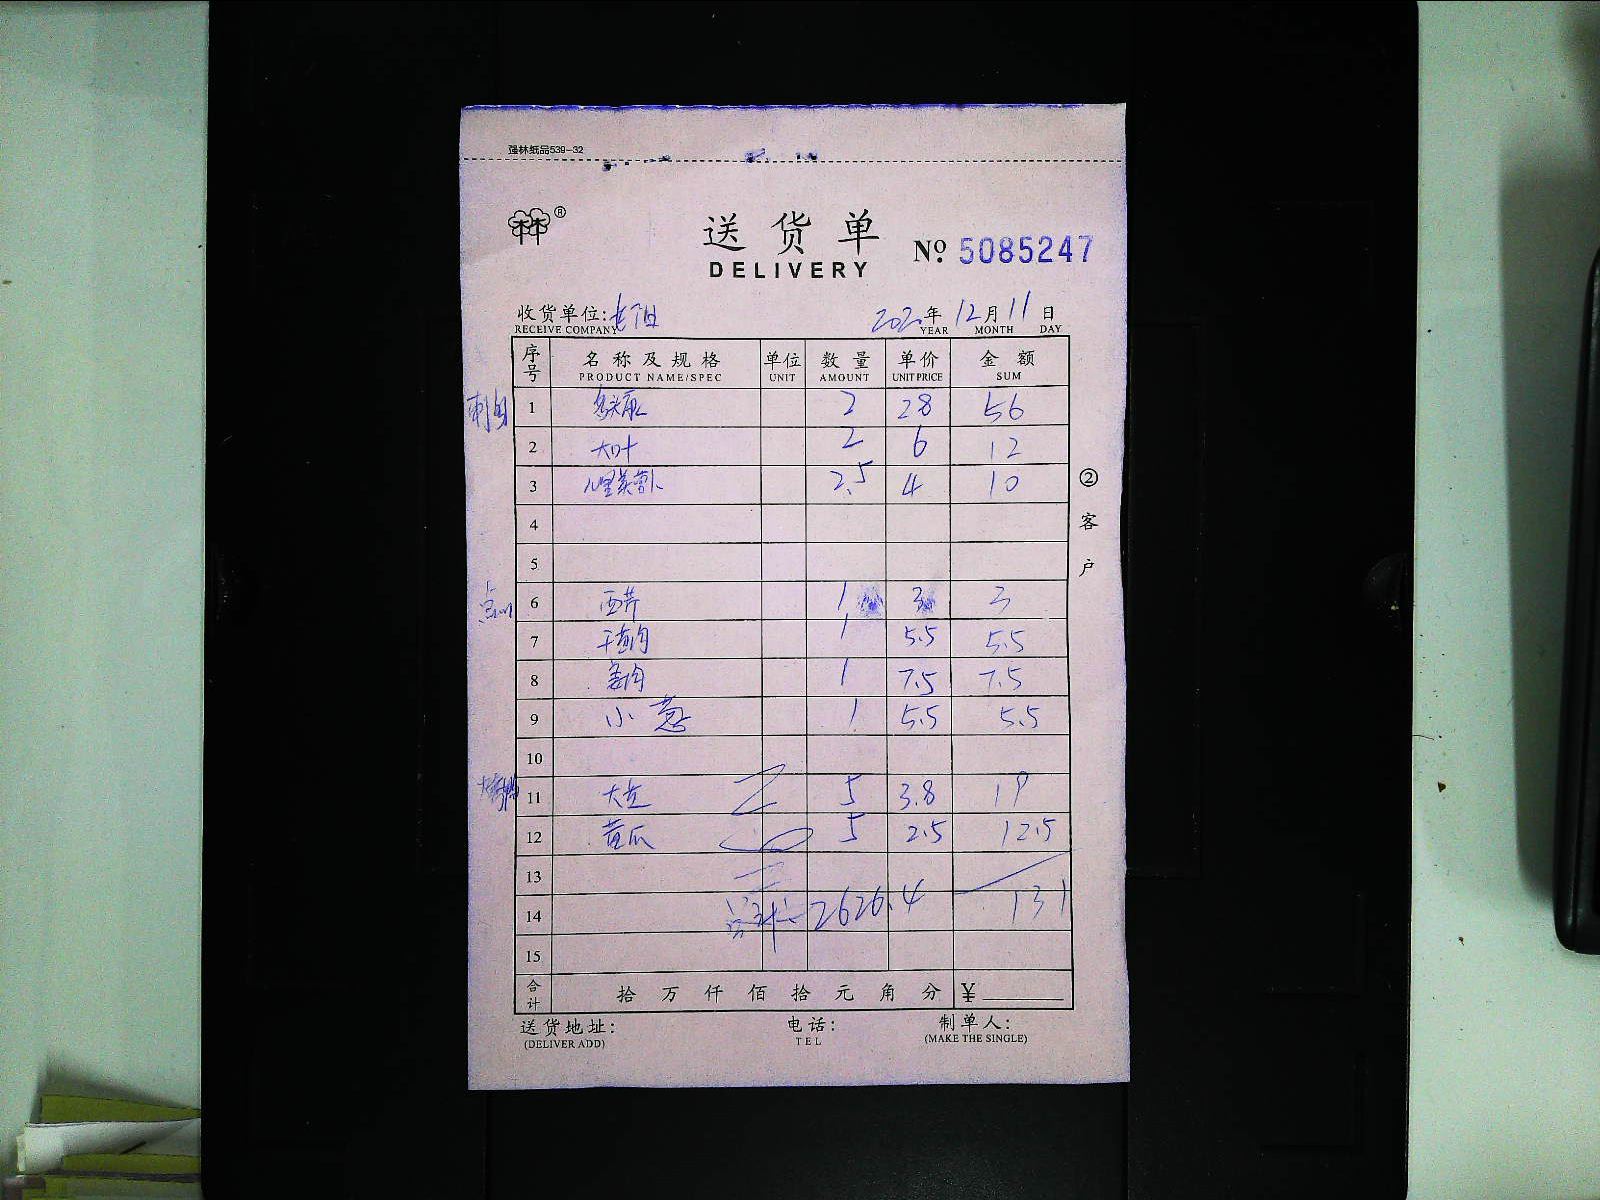 强林纸品539-32
林林®
送货单
DELIVERY
№ 5085247
收货单位:
RECEIVE COMPANY
2020年12月11日
YEAR MONTH DAY
序号 名称及规格 单位 数量 单价 金额
PRODUCT NAME/SPEC UNIT AMOUNT UNIT PRICE SUM
刺身 1 2 28 56
2 大叶 2 6 12
3 心里美萝卜 2.5 4 10
4
5
点心 6 西芹 1 3 3
7 1 5.5 5.5
8 姜肉 1 7.5 7.5
9 小葱 1 5.5 5.5
10
烤鸭 11 大葱 5 3.8 19
12 黄瓜 5 2.5 12.5
13
14 总计 2626.4 131
15
合计 拾 万 仟 佰 拾 元 角 分 ¥
送货地址: 电话: 制单人:
(DELIVER ADD) TEL (MAKE THE SINGLE)
②客户